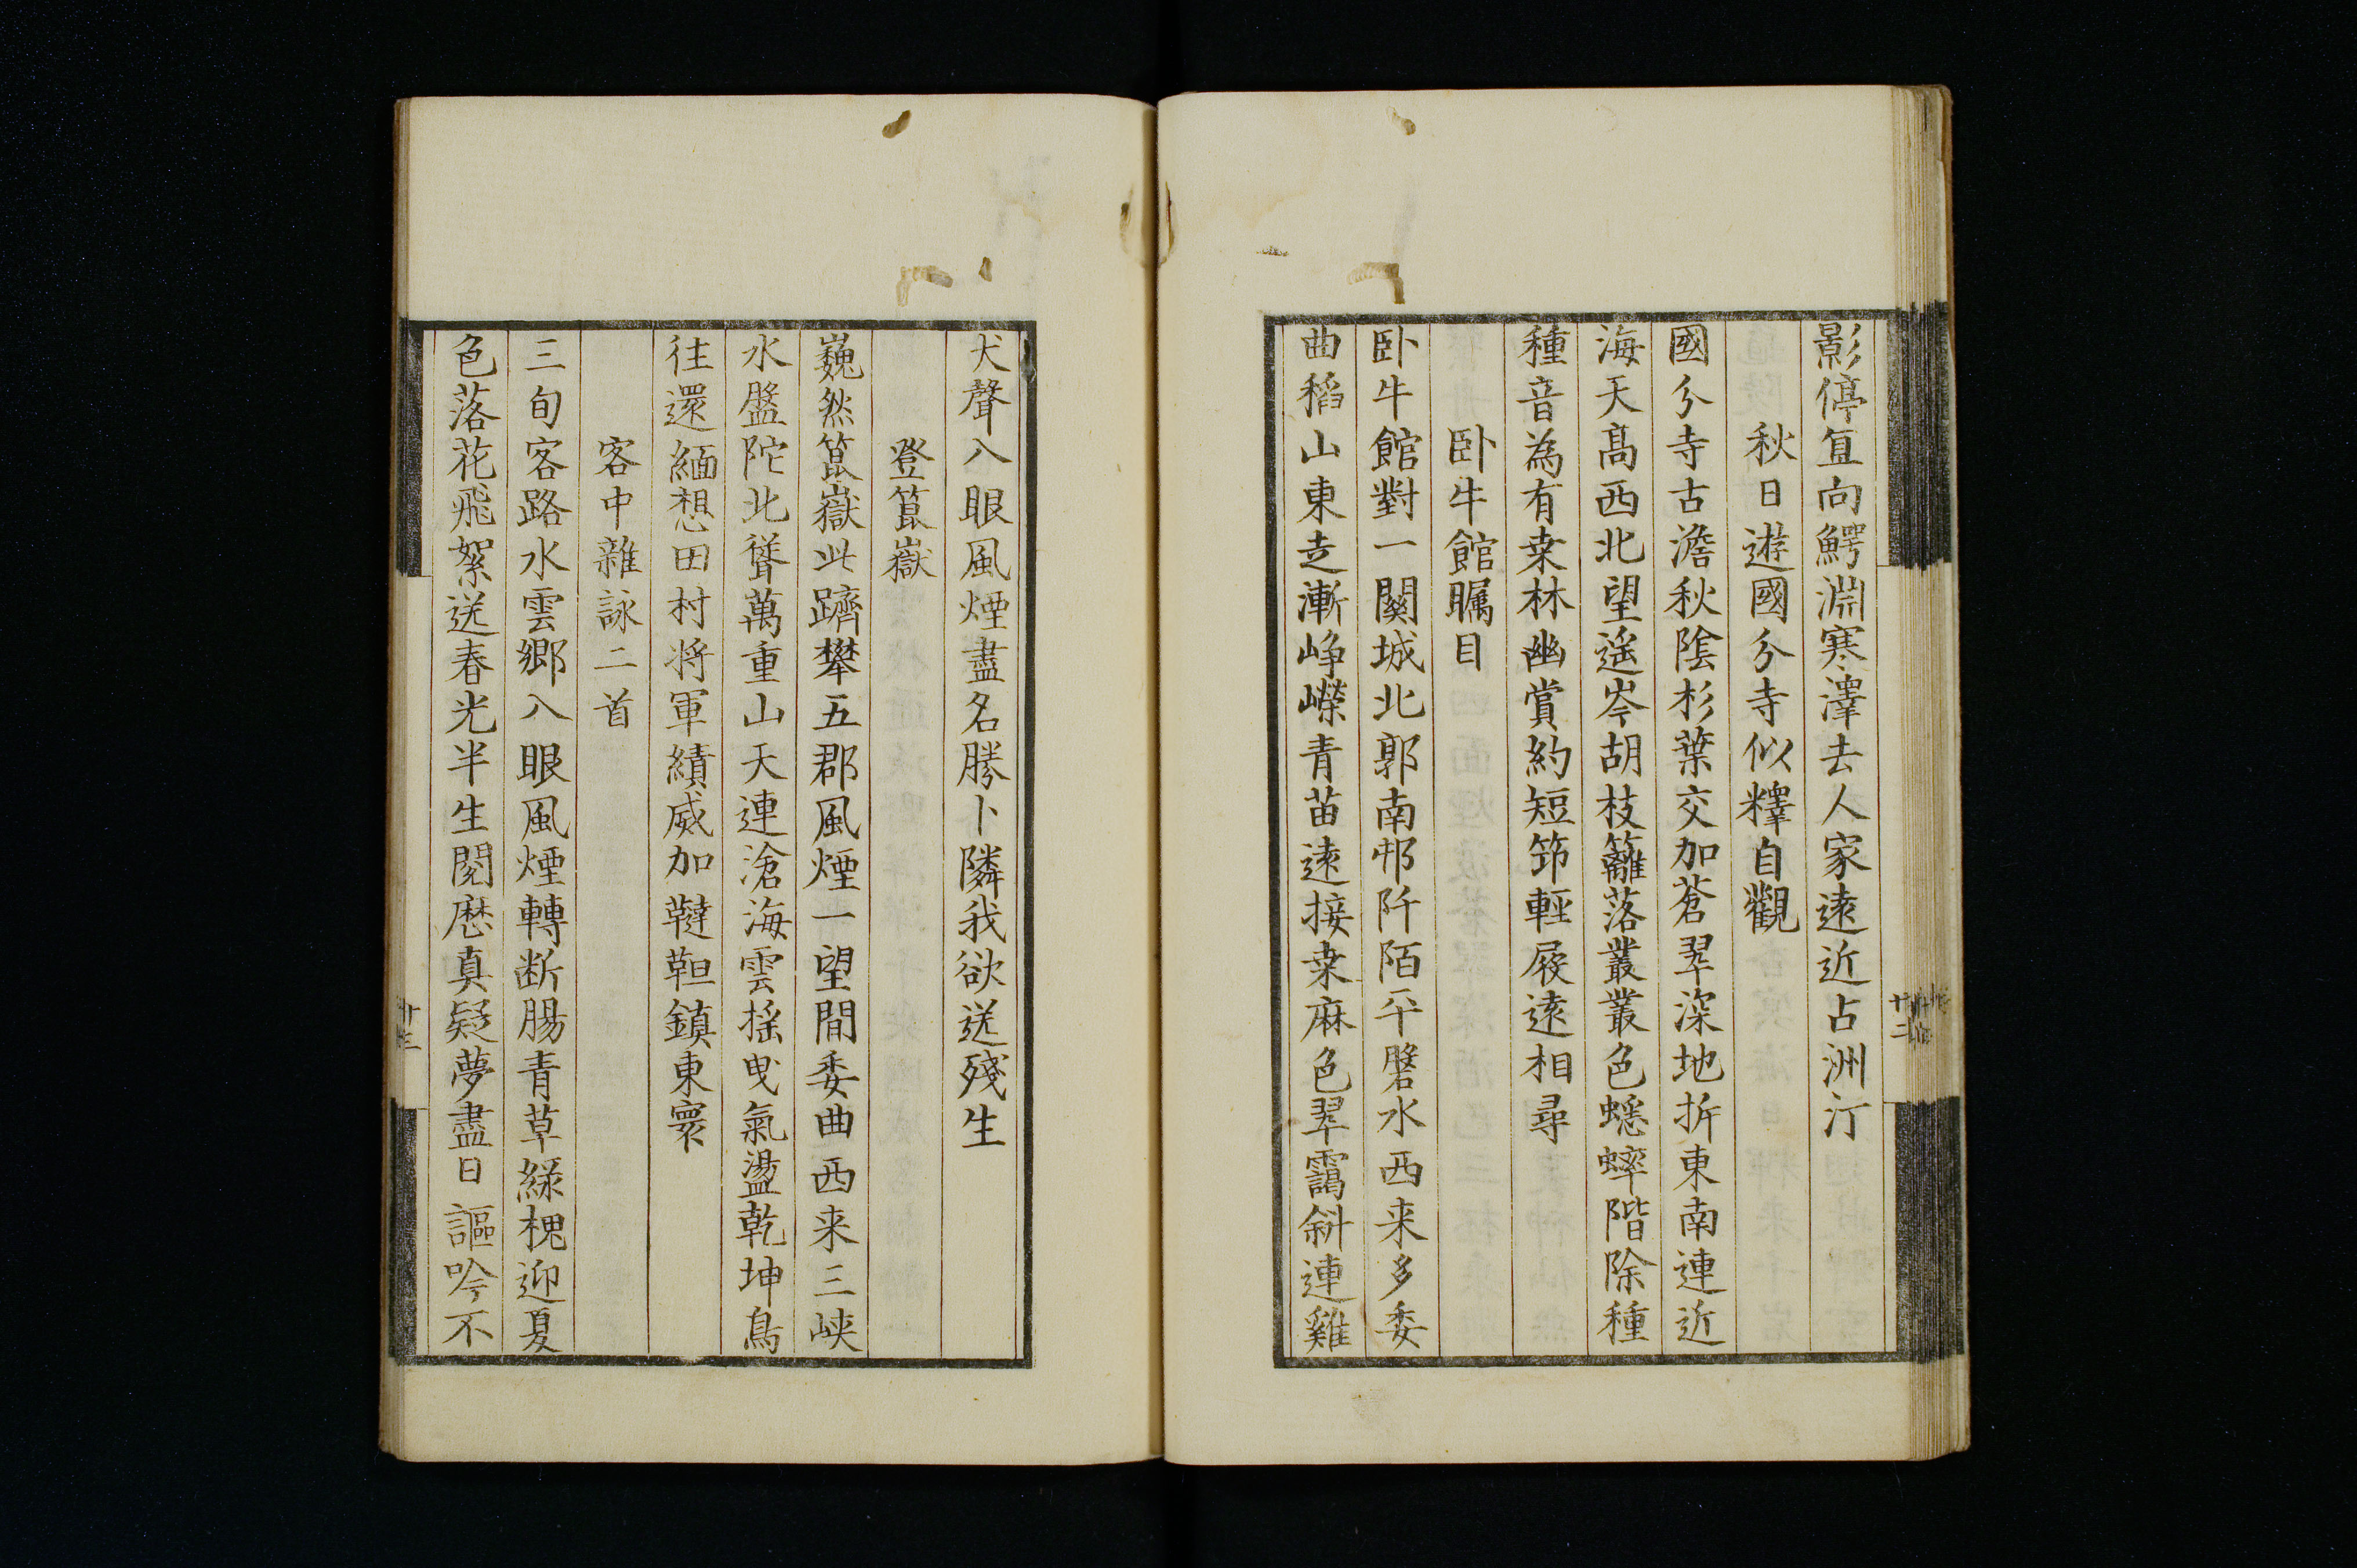 影停直向鰐淵寒澤去人家遠近占洲汀
秋日遊國分寺似釋自觀
國分寺古澹秋陰杉葉交加蒼翠深地折東南連近
海天髙西北望遥岑胡枝籬落叢叢色蟋蟀階除種
種音為有桒林幽賞約短笻輕屐遠相尋
卧牛館矚目
卧牛館對一關城北郭南邨阡陌平磐水西来多委
曲稻山東走漸崢嶸青苗遠接桒麻色翠靄斜連雞
十二
犬聲入眼風煙盡名勝卜隣我欲送殘生
登篦嶽
巍然篦嶽此躋攀五郡風煙一望間委曲西来三峽
水盤陀北聳萬重山天連滄海雲揺曳氣盪乾坤鳥
往還緬想田村将軍績威加韃靼鎮東寰
客中雜詠二首
三旬客路水雲郷入眼風煙轉断腸青草綠槐迎夏
色落花飛絮送春光半生閲歴真疑夢盡日謳吟不
十三